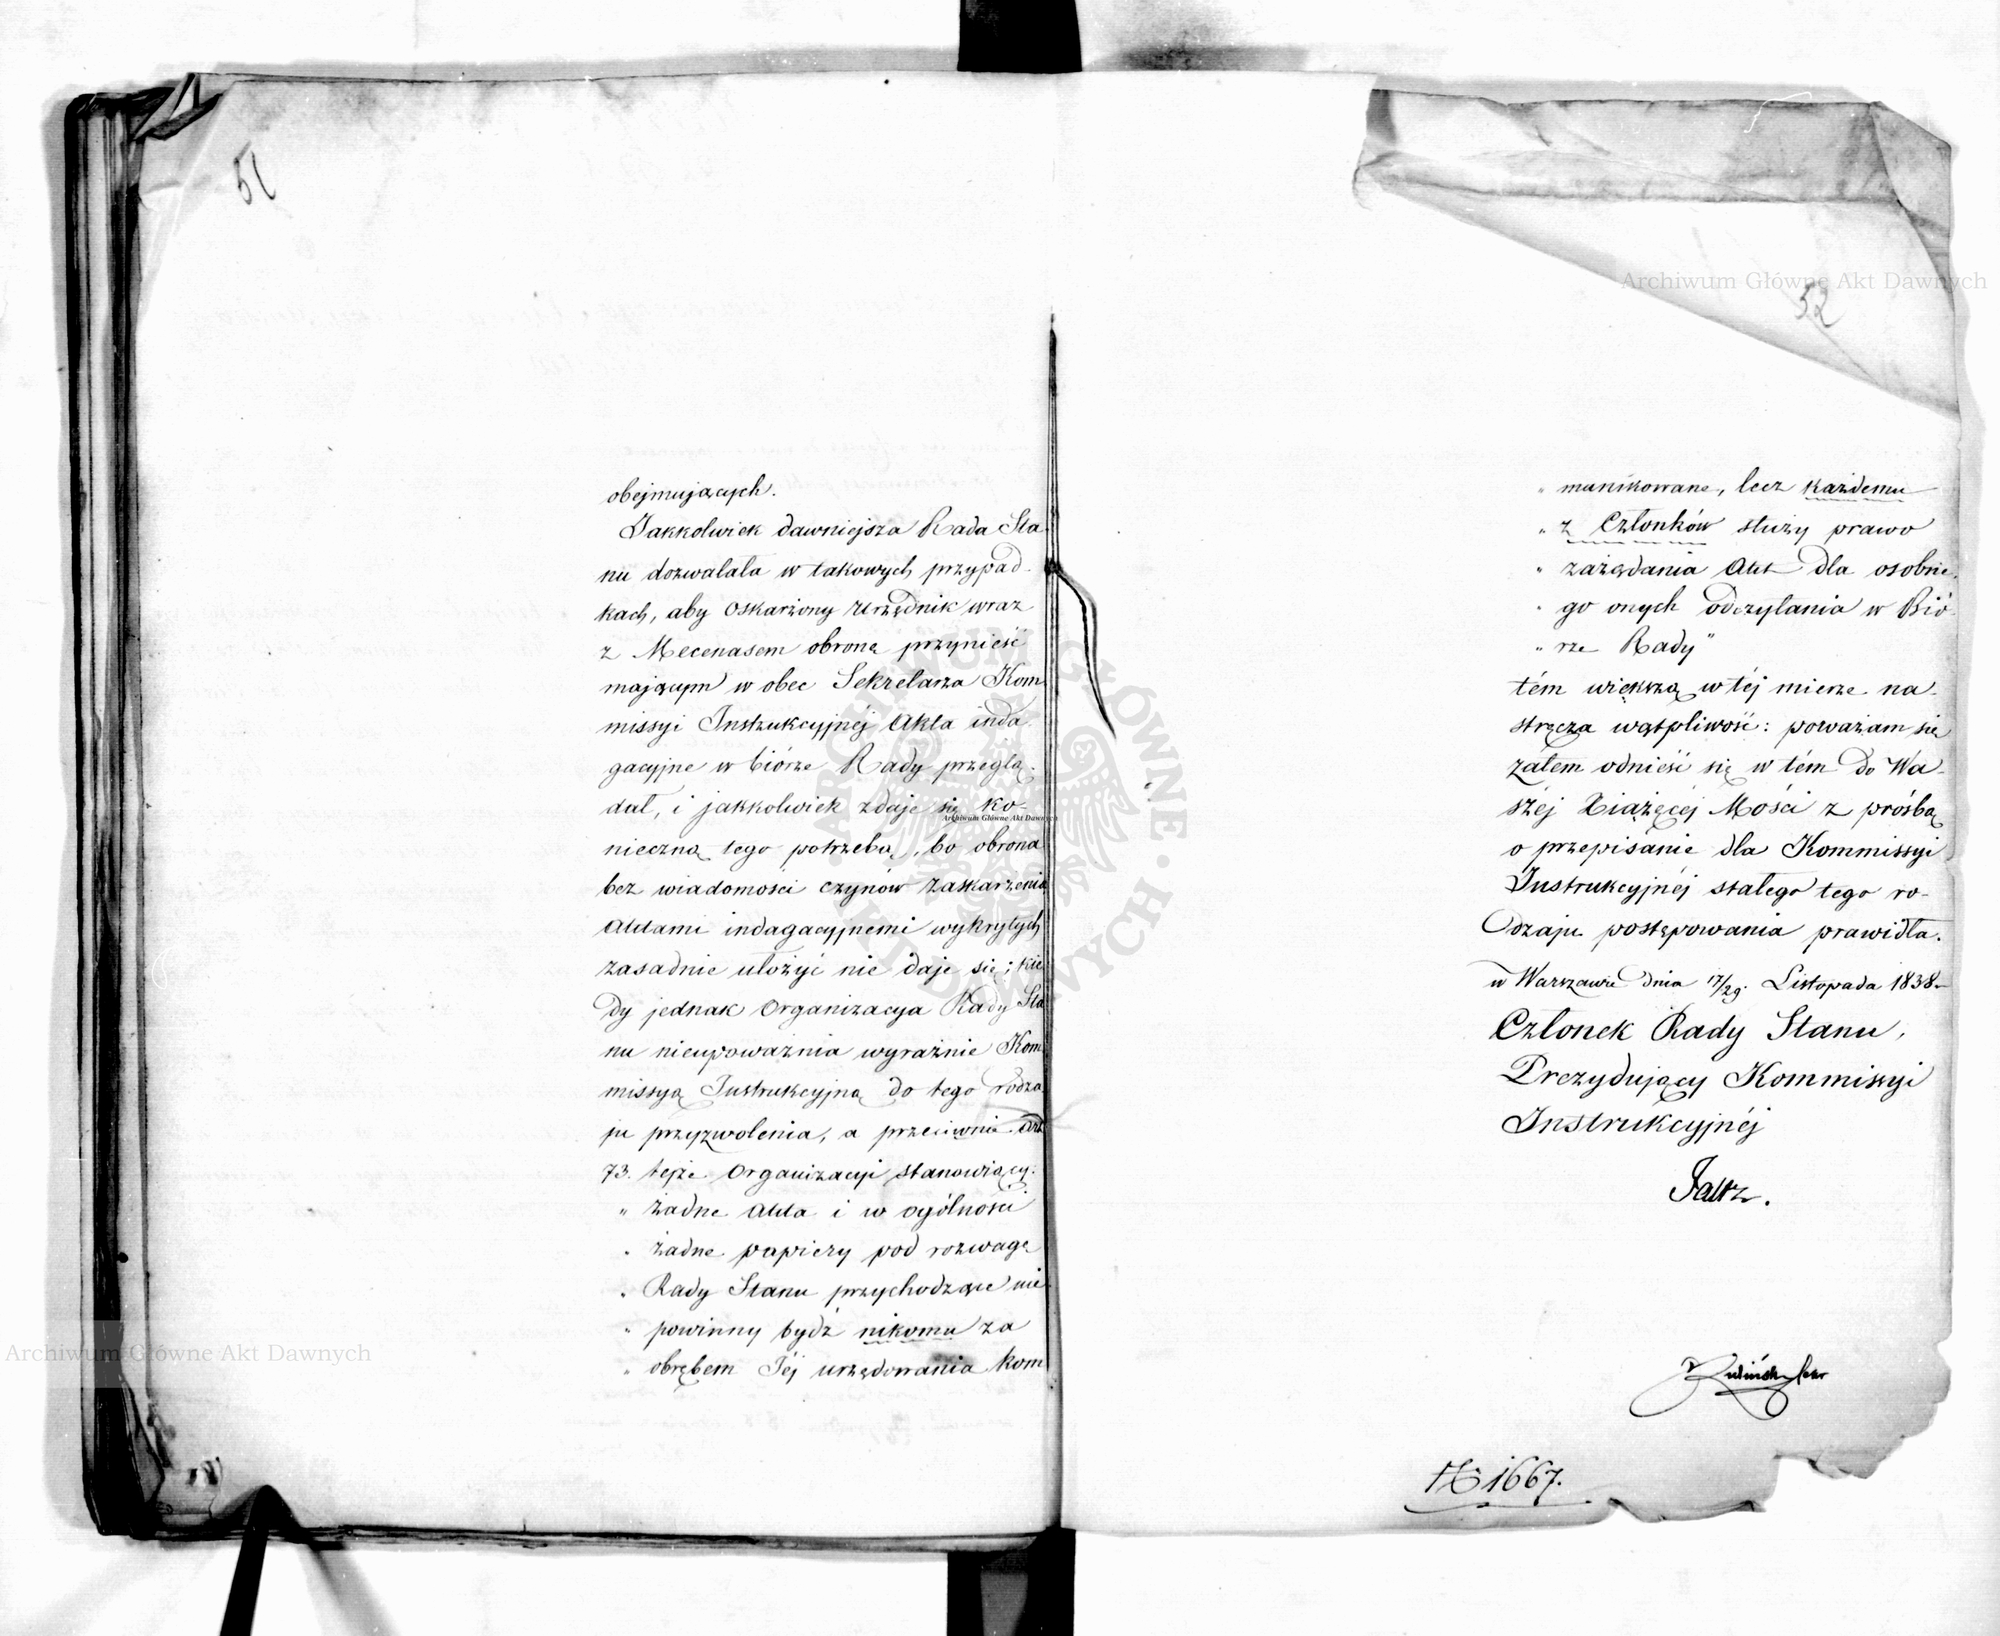 51
obejmujących.
Jakkolwiek dawniejsza Rada Sta
nu dozwalała w takowych przypad-
kach, aby oskarżony Urzędnik wraz
z Mecenasem obronę przynieść
mającym w obec Sekretarza Kom
missyi Instrukcyjnéj Akta inda
gacyjne w biórze Rady przeglą-
dał, i jakkolwiek zdaje się ko-
nieczną tego potrzebą, bo obrona
bez wiadomości czynów zaskarżenia
Aktami indagacyjnemi wykrytych
zasadnie ułożyć nie daje się; kie
dy jednak Organizacya Rady Sta
nu nieupoważnia wyraźnie Kom
missyą Instrukcyjną do tego rodza
ju przyzwolenia, a przeciwnie Art
73. tejże Organizacyi stanowiący:
" żadne Akta i w ogólności
" żadne papiery pod rozwagę
" Rady Stanu przychodzące nie
" powinny bydź nikomu za
" obrębem Jéj urzędowania kom
52
" munikowane, lecz każdemu
" z Członków służy prawo
" zażądania Akt dla osobne-
" go onych odczytania w Bió
" rze Rady"
tém większą w téj mierze na-
stręcza wątpliwość: poważam się
zatem odnieść się w tém do Wa-
széj Xiążęcéj Mości z prośbą
o przepisanie dla Kommissyi
Instrukcyjnéj stałego tego ro-
dzaju postępowania prawidła.
w Warszawie dnia 17/29. Listopada 1838.
Członek Rady Stanu,
Prezydujący Kommissyi
Instrukcyjnéj
№ 1667.
Archiwum Główne Akt Dawnych
Archiwum Główne Akt Dawnych
Archiwum Główne Akt Dawnych
ARCHIWUM GŁÓWNE AKT DAWNYCH